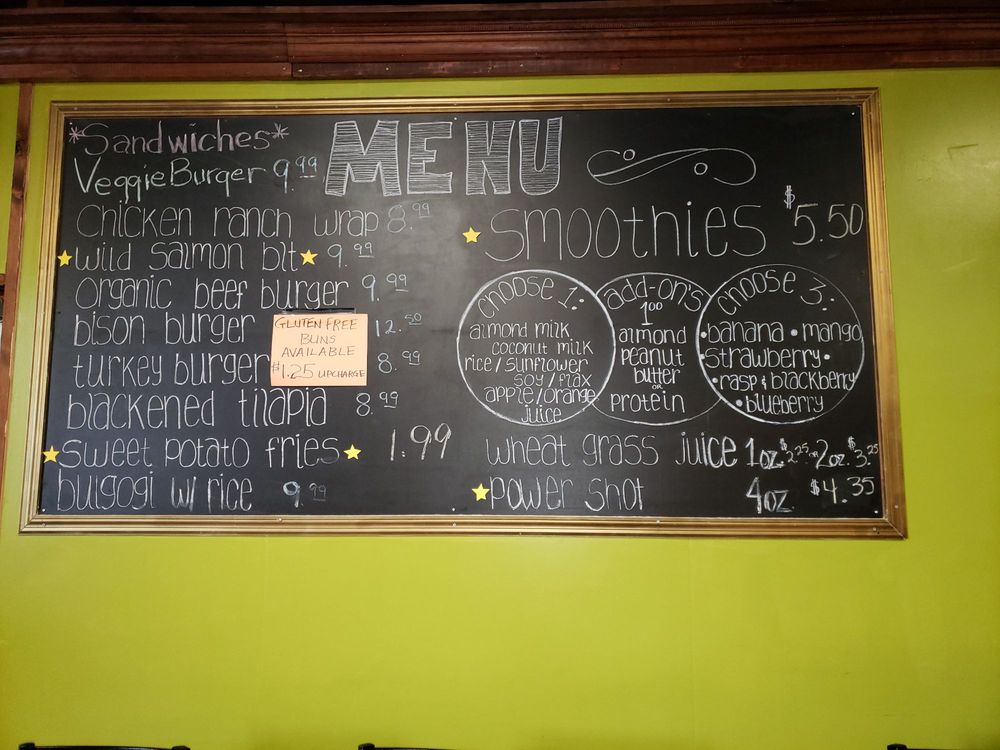 *Sandwiches*
MENU
Veggie Burger 9.99
chicken ranch wrap 8.99
wild salmon blt 9.99
organic beef burger 9.99
bison burger 12.50
turkey burger 8.99
GLUTEN FREE
BUNS
AVAILABLE
$1.25 UPCHARGE
blackened tilapia 8.99
sweet potato fries 1.99
bulgogi w/ rice 9.99
smoothies $5.50
choose 1:
almond milk
coconut milk
rice/sunflower
soy/flax
apple/orange
juice
add-on's
1.00
almond
peanut
butter
or
protein
choose 3:
•banana •mango
•strawberry•
•rasp & blackberry
•blueberry
wheat grass juice 1oz. $2.25 or 2oz. $3.25
power shot 4oz. $4.35